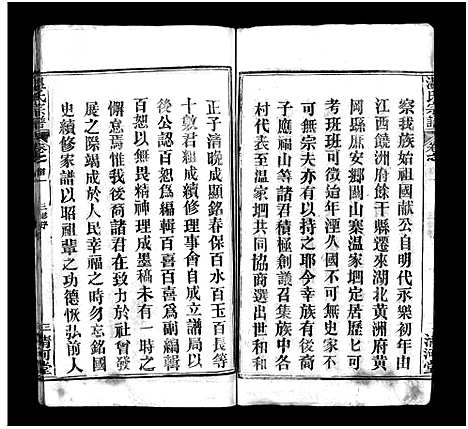 溫氏宗譜
察我族始祖國獻公自明代承乘初年由
江西饒洲府餘干縣遷來湖北黃洲府黃
岡縣庶安鄉閭山寨溫家垇定居歷七可
考班班可徵廹年湮久國不可無史家不
可無宗夫亦有以持之耶今幸有族後裔
子應福山等諸君積極創議召集族中各
村代表至温家垇共同協商選出世和和
清河堂
正子清晚成顯銘春保百水百玉百長等
十數君組成續修理事會自成立譜局以
後公認百恕為編輯百喜百喜為副編輯
百恕以無畏精神理成墨稿未有一時之
懈怠焉惟我後裔諸君在致力于社會發
展之際竭成於人民幸福之時勿忘銘國
史續修家譜以昭祖輩之功德恢弘前人
溫氏宗譜
三
清河堂